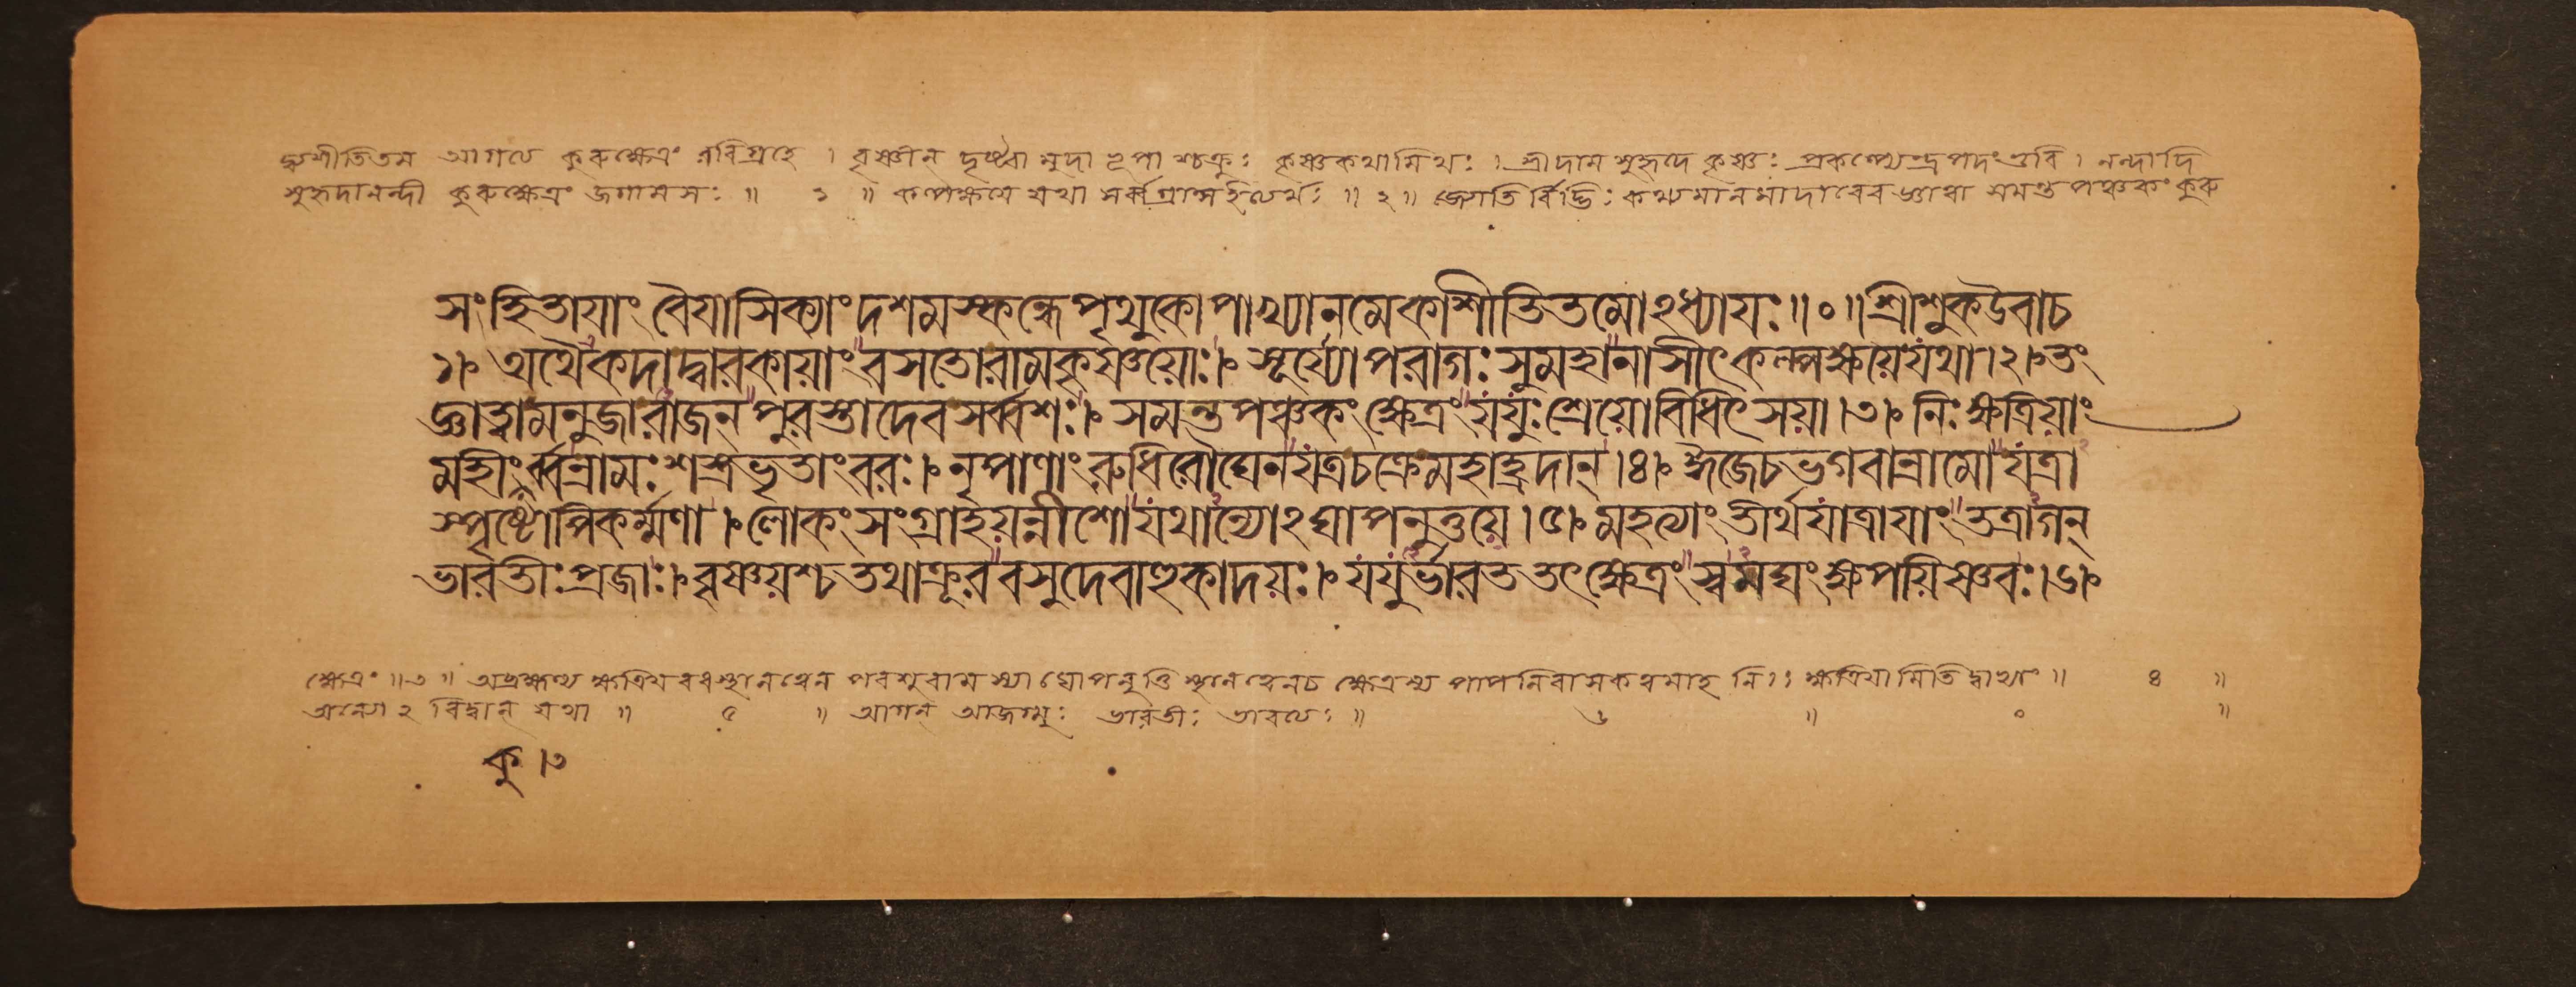 দ্ব্যশীতিতম আগতে কুরুক্ষেত্রং রবিগ্রহে । বৃষ্ণীন দৃষ্ট্বা মুদা নৃপাশ্চক্রুঃ কৃষ্ণকথামিথঃ । শ্রীদাম সুহৃদে কৃষ্ণঃ নন্দাদি
সুহৃদানন্দী কুরুক্ষেত্রং জগামসঃ ॥ ১ ॥ কল্পক্ষয়ে যথা সর্ব্বগ্রাস ॥ ২ ॥ জ্যোতির্বিদ্ভিঃ কথ্যমানমাদাবেব জ্ঞাত্বা সমন্তপঞ্চকং কুরু
সংহিতায়াং বৈয়াসিক্যাং দশমস্কন্ধেপৃথুকোপাখ্যানমেকাশীতিতমোঽধ্যায়ঃ॥০॥শ্রীশুকউবাচ
১। অথৈকদাদ্বারকায়াং বসতোরামকৃষ্ণয়োঃ। সূর্য্যোপরাগঃ সুমহানাসীৎকল্পক্ষয়েযথা।২। তং
জ্ঞাত্বামনুজারাজন্ পুরস্তাদেবসর্ব্বশঃ। সমন্তপঞ্চকং ক্ষেত্রং যযুঃ শ্রেয়োবিধিৎসয়া।৩। নিঃক্ষত্রিয়াং
মহীংকুর্ব্বন্রামঃ শস্ত্রভৃতাংবরঃ। নৃপাণাং রুধিরৌঘেনযত্রচক্রেমহাহ্রদান্।৪। ঈজেচভগবান্রামো যত্রা
স্পৃষ্টোপিকর্ম্মণা। লোকং সংগ্রাহয়ন্নীশোযথান্যোঽঘাপনুত্তয়ে।৫। মহত্যাং তীর্থযাত্রায়াং তত্রাগন্
ভারতীঃ প্রজাঃ। বৃষ্ণয়শ্চতথাক্রূরবসুদেবাহুকাদয়ঃ। যযুর্ভারততৎক্ষেত্রং স্বমঘং ক্ষপয়িষ্ণবঃ।৬।
ক্ষেত্রং ॥৩॥ ক্ষত্রিয় পরশুরামস্যাঘোপনুত্তি ক্ষেত্রস্য পাপনিরাসকত্বমাহ নিঃ ক্ষত্রিয়ামিতিদ্বাভ্যাং ॥ ৪ ॥
অন্যোঽবিদ্বান্ যথা ॥ ৫ ॥ আগন্ আজগ্মুঃ ভারতীঃ ॥ ৬ ॥ ০ ॥
কু ।৩